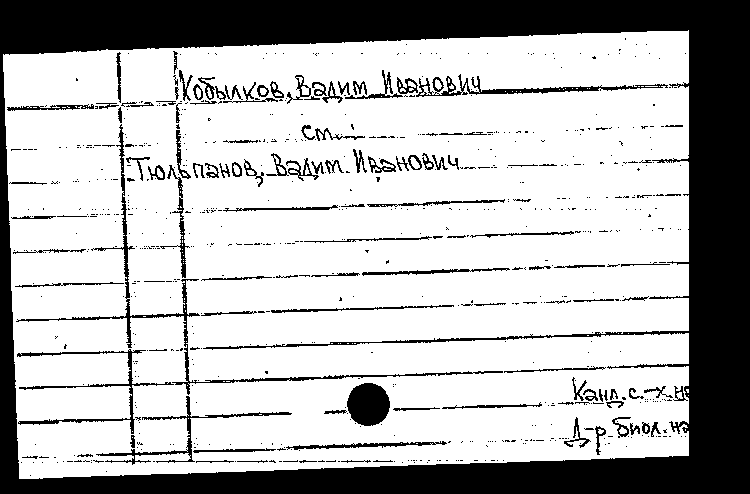 Кобылков, Вадим Иванович
см.:
Тюльпанов, Вадим Иванович
Канд. с.-х. на
Д-р биол. на